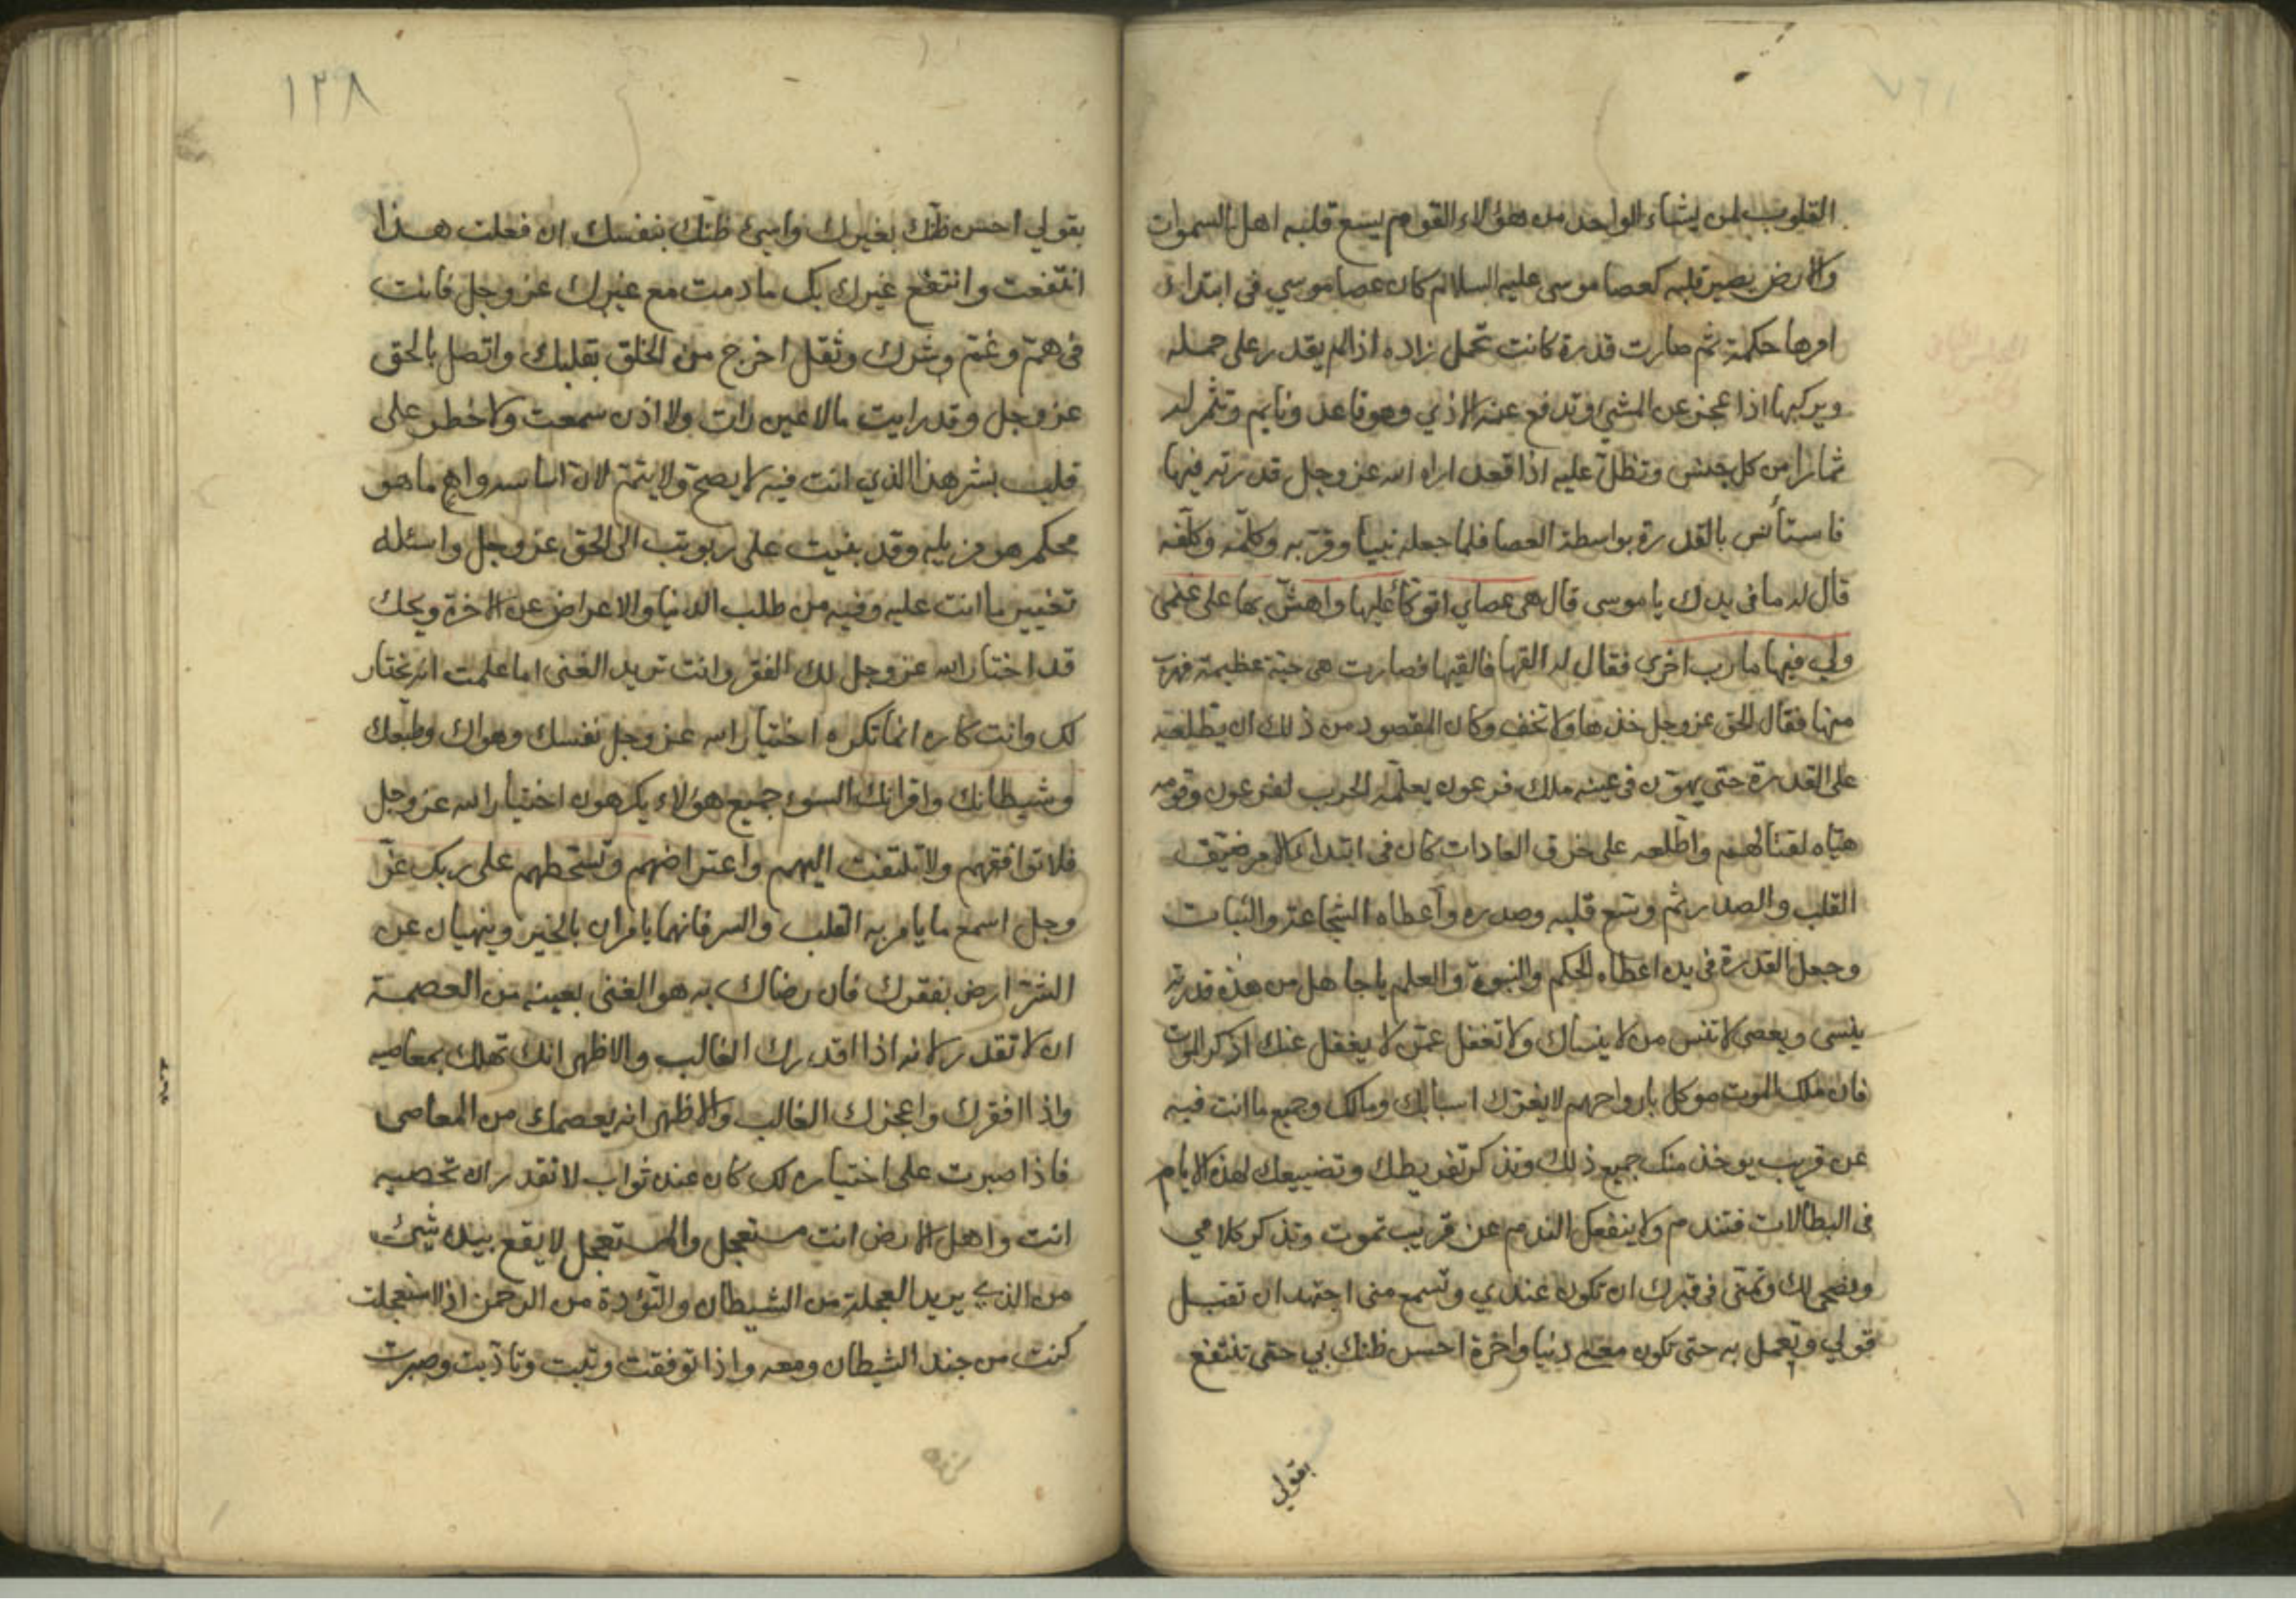 القلوب لمن يشاء الواحد من هؤلاء القوم يسع قلبه اهل السموات
والارض يصير قلبه كعصا موسى عليه السلام كان عصا موسي فى ابتداء
امرها حكمة ثم صارت قدرة كانت تحمل زاده اذا لم يقدر على حمله
ويركبها اذا عجز عن المشي وتدفع عنه الاذي وهو قاعد ونايم وتثمر له
ثمارا من كل جنس وتظل عليه اذا قعد اراه الله عز وجل قدرته فيها
فاستأنس بالقدرة بواسطة العصا فلما جعله نبيا وقربه وكلمه وكلفه
قال له ما فى يدك يا موسى قال هى عصاي اتوكأ عليها واهش بها على غنمى
ولي فيها مارب اخرى فقال له القها فالقيها فصارت هى حية عظيمة فهرب
منها فقال الحق عز وجل خذها ولا تخف وكان المقصود من ذلك ان يطلعه
على القدرة حتى يهون فى عينه ملك فرعون يعلمه الحرب لفرعون وقومه
هياه لقتالهم واطلعه على خرق العادات كان فى ابتداء الامر ضيق
القلب والصدر ثم وسع قلبه وصدره واعطاه الشجاعة والثبات
وجعل القدرة فى يده اعطاه الحكم والنبوة والعلم يا جاهل من هذه قدرته
ينسى ويعصى لا تنس من لا ينساك ولا تغفل عمن لا يغفل عنك اذكر الموت
فان ملك الموت موكل بارواحهم لا يغرك اسبابك ومالك وجميع ما انت فيه
عن قريب يوخذ منك جميع ذلك وتذكر تفريطك وتضييعك لهذه الايام
فى البطالات فتندم ولا ينفعك الندم عن قريب تموت وتذكر كلامي
ونصحى لك وتمنى فى قبرك ان تكون عندي وتسمع منى اجتهد ان تقبل
قولي وتعمل به حتى تكون معى دنيا واخرة احسن ظنك بي حتى تنتفع
بقولي
١٢٨
بقولي احسن ظنك بغيرك واسئ ظنك بنفسك ان فعلت هذا
انتفعت وانتفع غيرك بك ما دمت مع غيرك عز وجل فانت
فى هم وغم وشرك وثقل اخرج من الخلق بقلبك واتصل بالحق
عز وجل وقد رايت ما لا عين رات ولا اذن سمعت ولا خطر على
قلب بشر هذا الذي انت فيه لا يصح ولا يتم لان اساسه واه ما هو
محكم هو مزبلة وقد بنيت على ربوة تب الى الحق عز وجل واسئله
تغيير ما انت عليه وفيه من طلب الدنيا والاعراض عن الاخرة ويحك
قد اختار الله عز وجل لك الفقر وانت تريد الغنى اما علمت انه يختار
لك وانت كاره انما تكره اختيار الله عز وجل نفسك وهواك وطبعك
وشيطانك واقرانك السوء جميع هؤلاء يكرهون اختيار الله عز وجل
فلا توافقهم ولا تلتفت اليهم واعتراضهم وتسخطهم على ربك عز
وجل اسمع ما يامر به القلب والسر فانهما يامران بالخير وينهيان عن
الشر ارض بفقرك فان رضاك به هو الغنى بعينه من العصمة
ان لا تقدر لانه اذا اقدرك الغالب والاظهر انك تهلك بمعاصيه
واذا افقرك واعجزك الغالب والاظهر انه يعصمك من المعاصى
فاذا صبرت على اختياره لك كان عنده ثواب لا تقدر ان تحصيه
انت واهل الارض انت مستعجل والمستعجل لا يقع بيده شيئ
من الذي يريد العجلة من الشيطان والتؤدة من الرحمن اذا استعجلت
كنت من جند الشيطان ومعه واذا توقفت وثبت وتادبت وصبرت